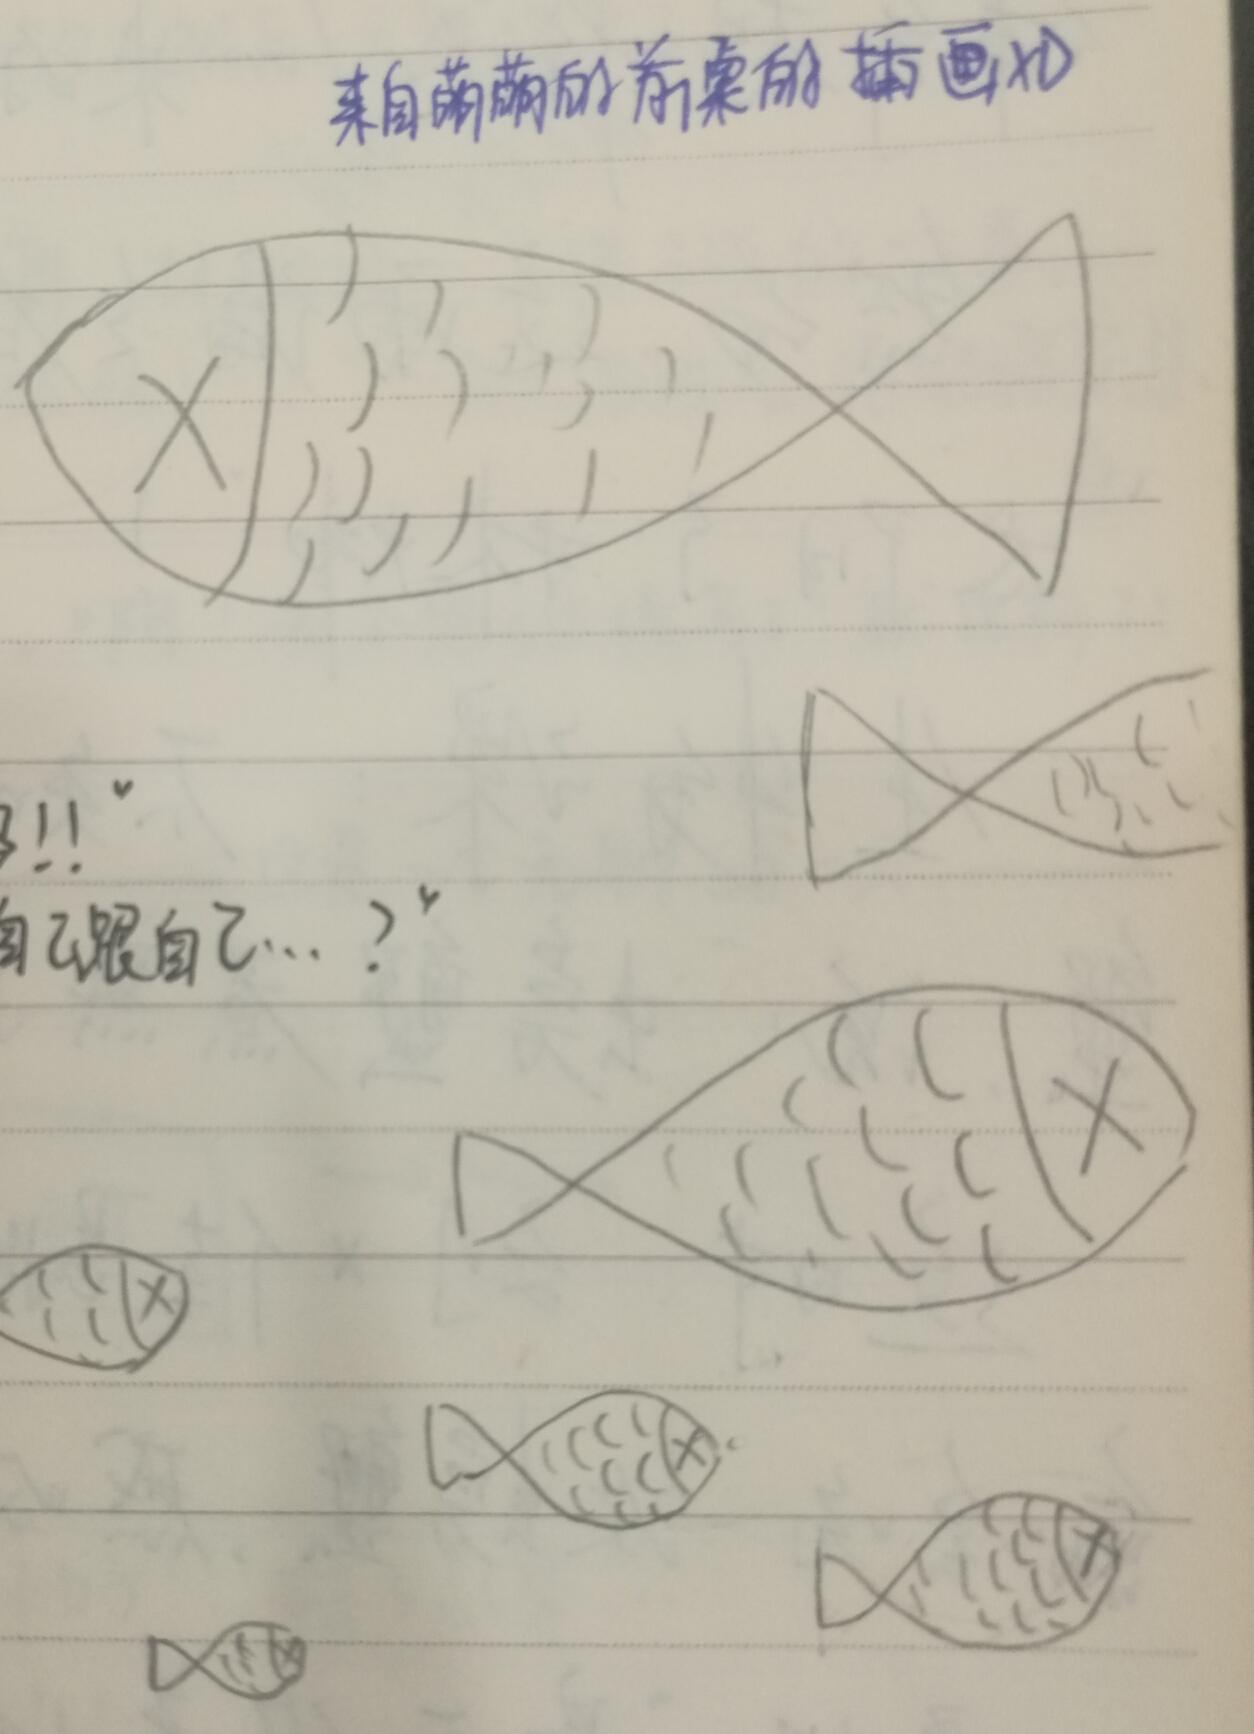 来自萌萌的前桌的插画XD
!!"
自己跟自己...?"